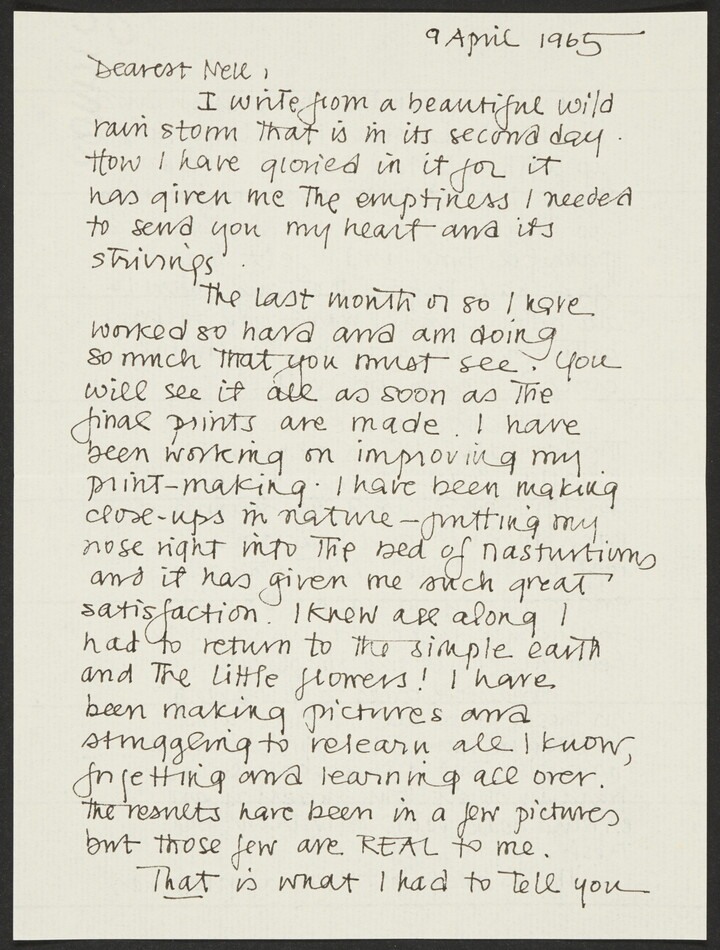 9 April 1965
Dearest Nell,
I write from a beautiful wild
rain storm that is in its second day.
How I have gloried in it for it
has given me the emptiness I needed
to send you my heart and its
strivings.
The last month or so I have
worked so hard and am doing
so much that you must see. You
will see it all as soon as the
final prints are made. I have
been working on improving my
print-making. I have been making
close-ups in nature – putting my
nose right into the bed of nasturtiums
and it has given me such great
satisfaction. I knew all along I
had to return to the simple earth
and the little flowers! I have
been making pictures and
struggling to relearn all I know,
forgetting and learning all over.
The results have been in a few pictures
but those few are REAL to me.
That is what I had to tell you